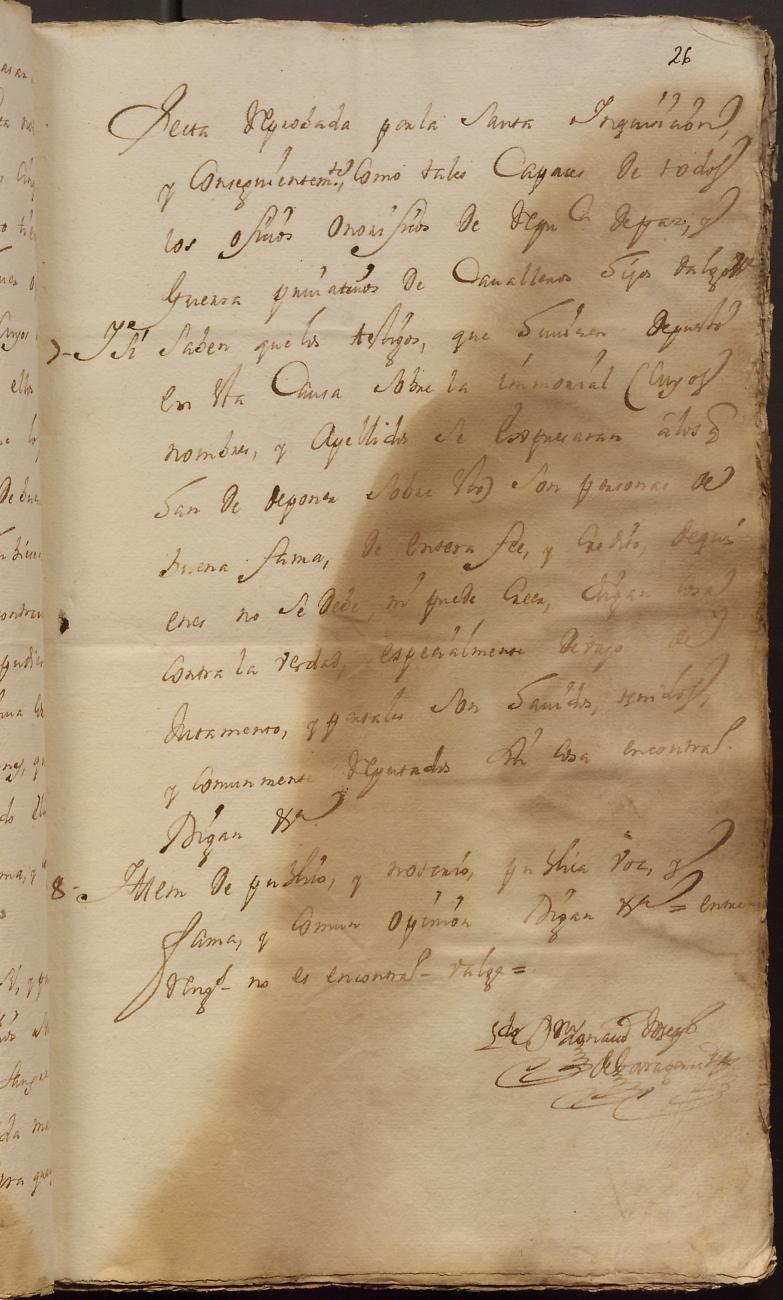 26
Secta Reprobada por la Santa Inquisicion,
y Consequientemte, Como tales Capaces de todos
los oficios onorificos de Repuca de paz, y
Guerra privativos de Cavalleros hijos dalgo
7 - Iti Saben que los testigos, que hubieren depuesto
en esta Causa sobre la immemorial (Cuyos
nombres, y Apellidos se expresaran a los q
han de deponer sobre esto) son personas de
buena fama, de entera fee, y credito, de qui
enes no se debe, ni puede creer, digan cosa
contra la verdad, especialmente devajo de
Juramento, y por tales son havidos, tenidos,
y comunmente Reputados sin cosa encontral.
Digan &a
8 - Ittem de publico, y notorio, publica voz, y
fama, y comun opinion Digan &a = entre
Rengs - no es encontral - valga =
Ldo Dn